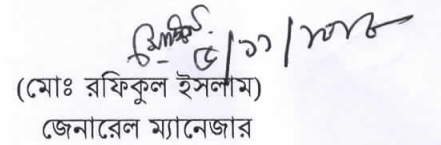 ৫/১১/২০১৮
(মোঃ রফিকুল ইসলাম)
জেনারেল ম্যানেজার